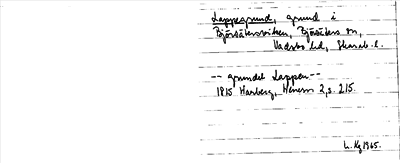 Lappegrund, grund i
Björsätersviken, Björsäters sn,
Vadsbo hd, Skarab. l.
-- grundet Lappen --
1815 Hasberg, Vänern 2, s. 215.
L. Kg 1965.